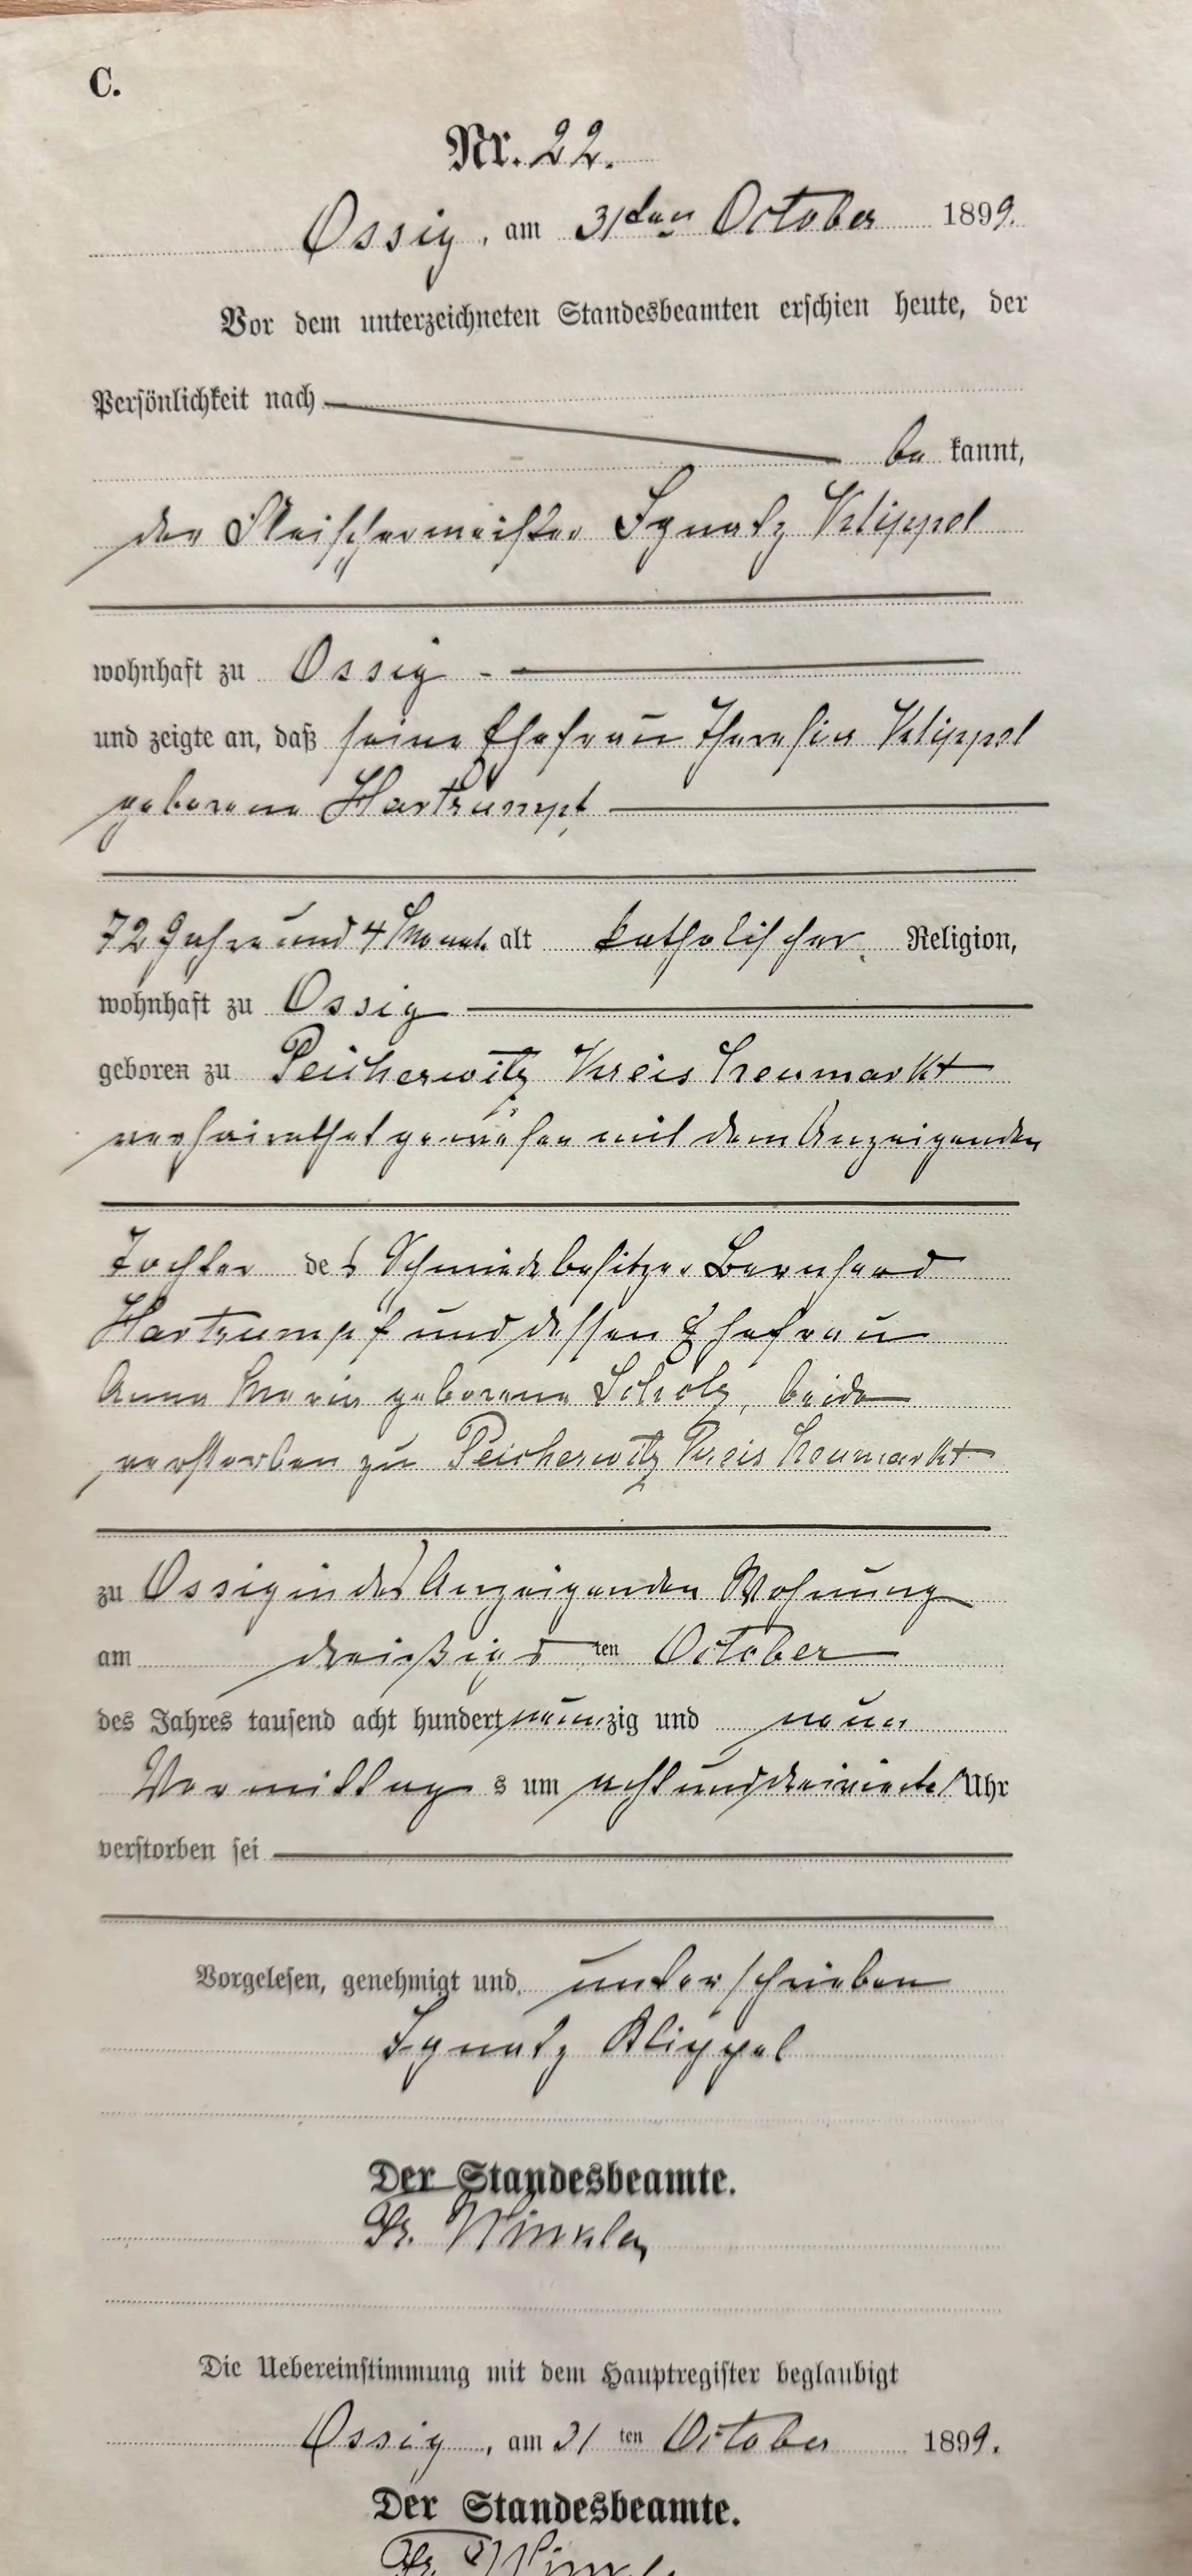 C.
Nr. 22.
Ossig, am 31ten October 1899.
Vor dem unterzeichneten Standesbeamten erschien heute, der
Persönlichkeit nach
be kannt,
der Fleischermeister Ignatz Klippel
wohnhaft zu Ossig -
und zeigte an, daß seine Ehefrau Theresia Klippel
geborene Hartrumpf
72 Jahre und 4 Monat. alt katholischer Religion,
wohnhaft zu Ossig
geboren zu Peicherwitz Kreis Neumarkt
verheirathet gewesen mit dem Anzeigenden
Tochter des Schmiedebesitzer Bernhard
Hartrumpf und dessen Ehefrau
Anna Maria geborene Scholz, beide
verstorben zu Peicherwitz Kreis Neumarkt
zu Ossig in des Anzeigenden Wohnung
am dreißigs ten October
des Jahres tausend acht hundert neunzig und neun
Vormittag s um acht und dreiviertel Uhr
verstorben sei
Vorgelesen, genehmigt und unterschrieben
Ignatz Klippel
Der Standesbeamte.
Fr. Winkler
Die Uebereinstimmung mit dem Hauptregister beglaubigt
Ossig, am 31 ten October 1899.
Der Standesbeamte.
Fr. Winkler